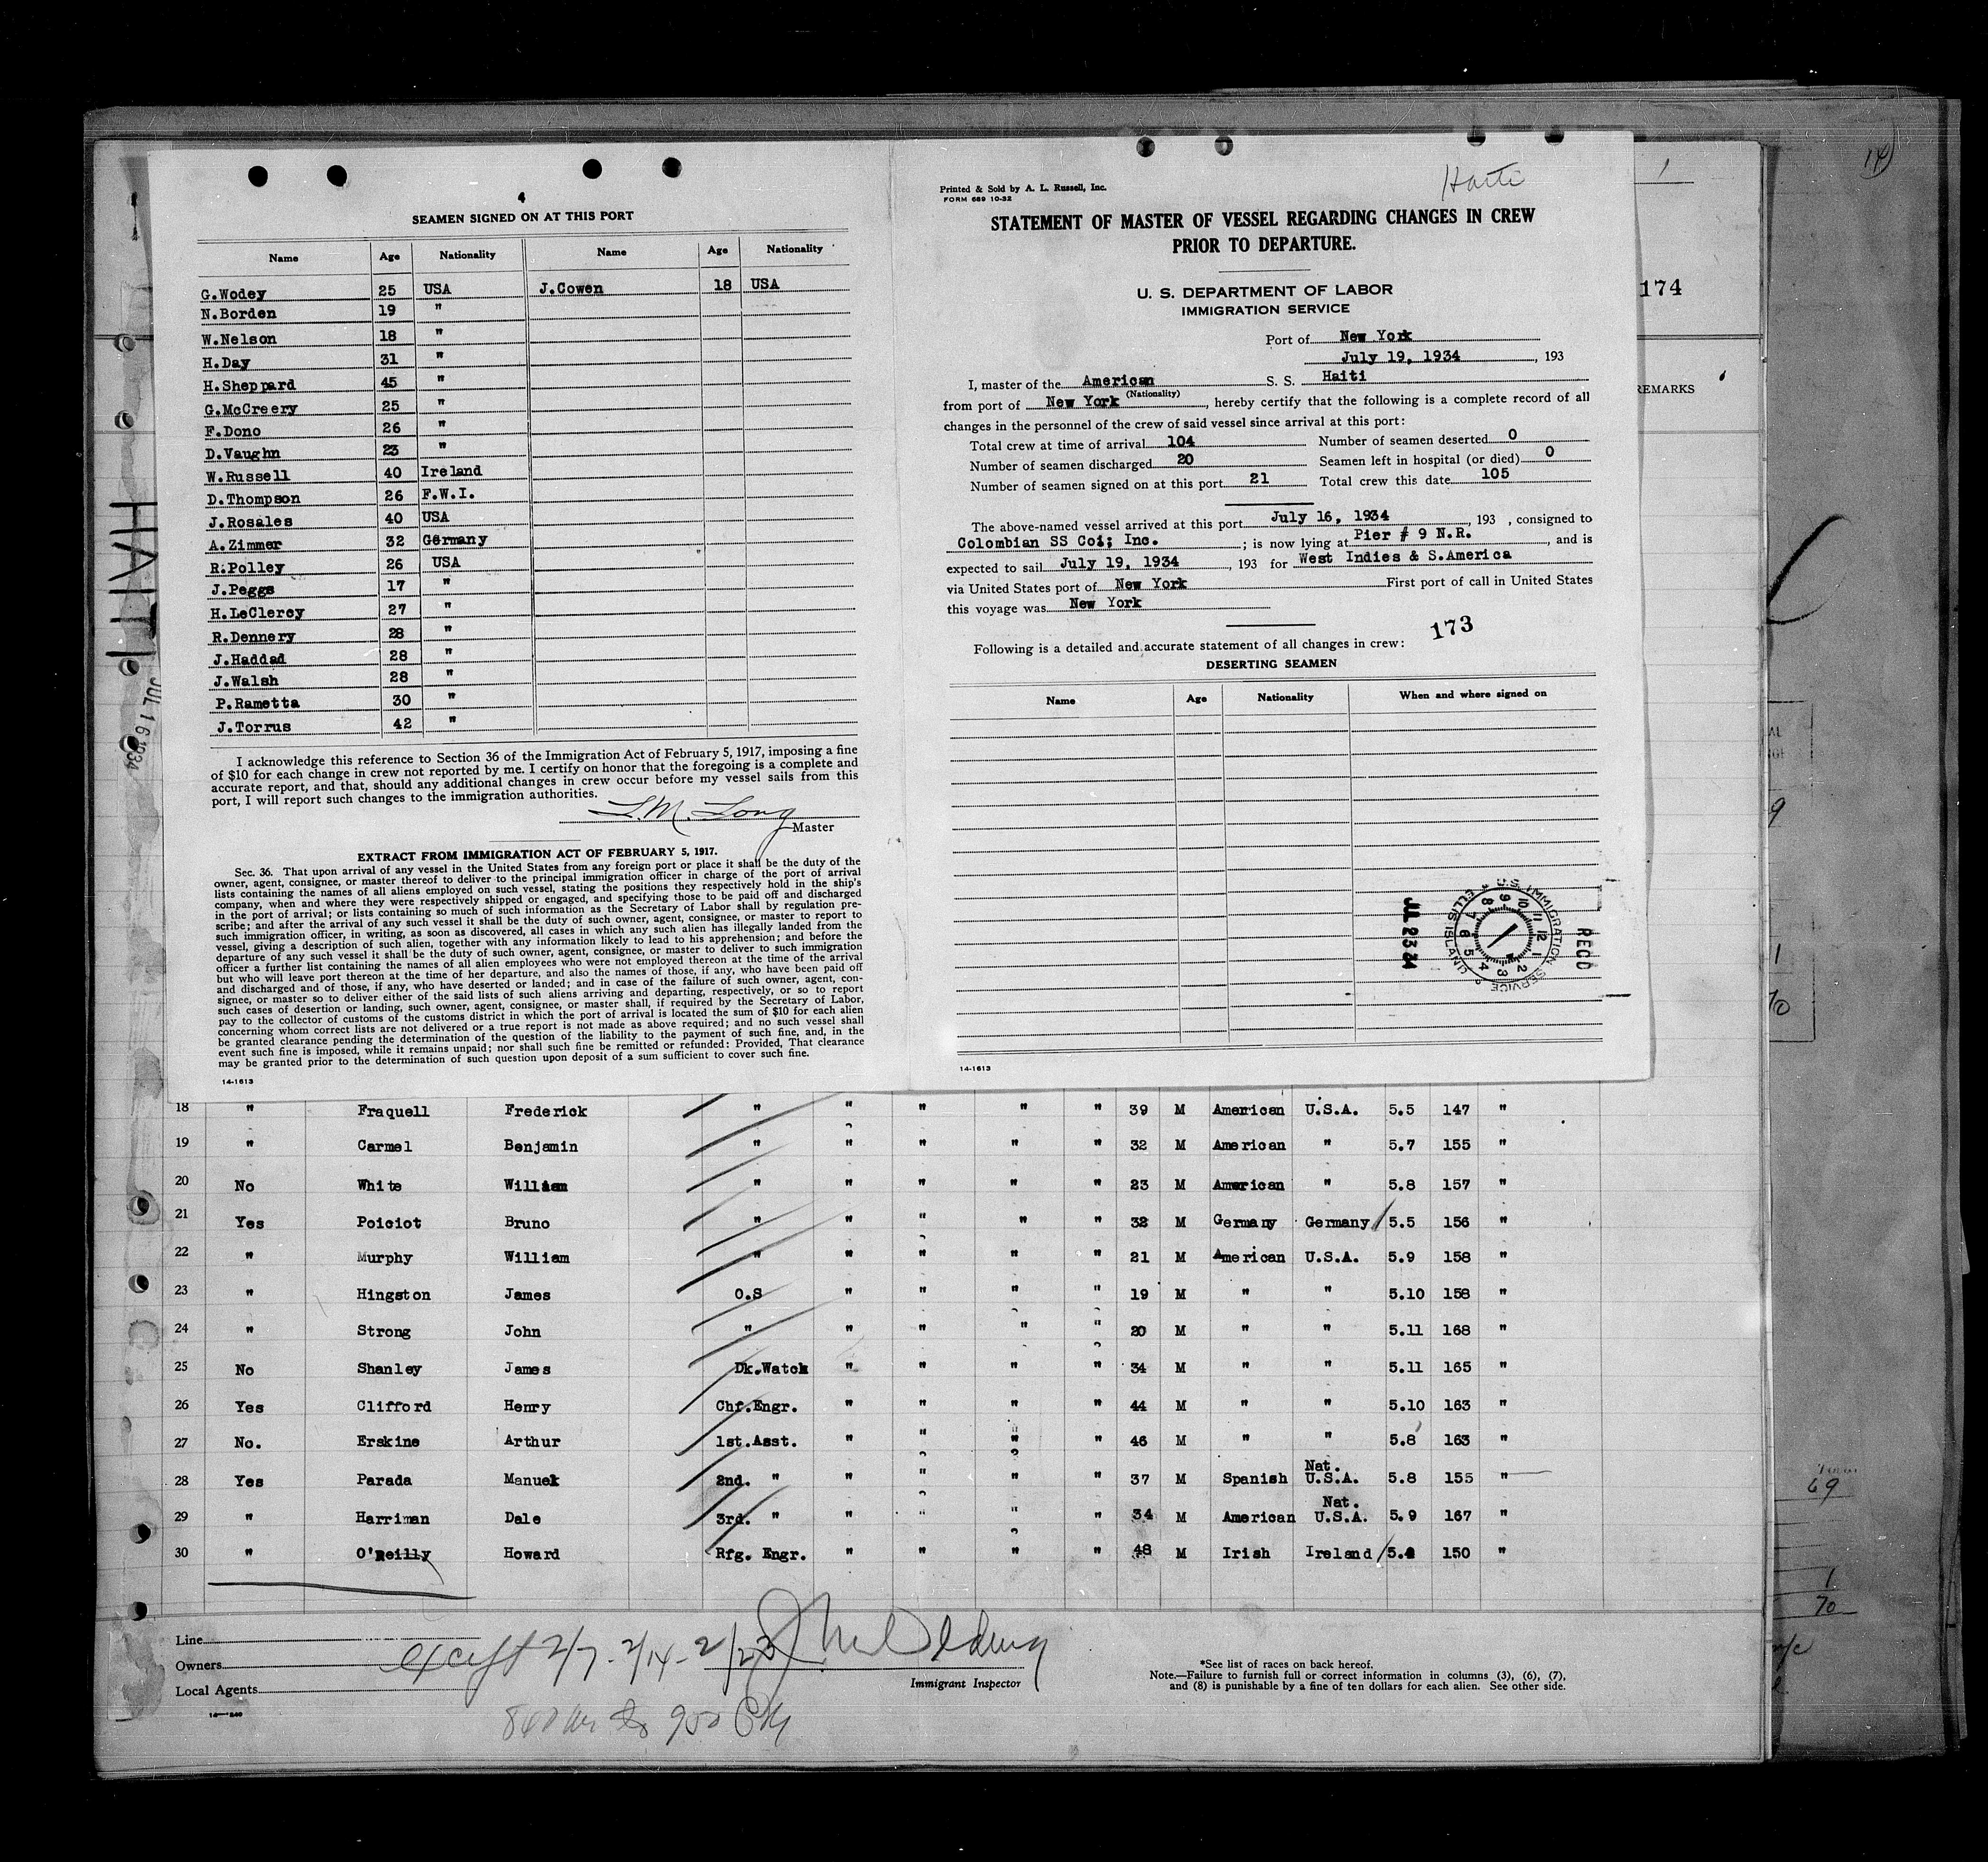 4
SEAMEN SIGNED ON AT THIS PORT
Name Age Nationality Name Age Nationality
G.Wodey 25 USA J.Cowen 18 USA
N.Borden 19 "
W.Nelson 18 "
H.Day 31 "
H.Sheppard 45 "
G.McCreery 25 "
F.Dono 26 "
D.Vaughn 23 "
W.Russell 40 Ireland
D.Thompson 26 F.W.I.
J.Rosales 40 USA
A.Zimmer 32 Germany
R.Polley 26 USA
J.Peggs 17 "
H.LeClercy 27 "
R.Dennery 28 "
J.Haddad 28 "
J.Walsh 28 "
P.Rametta 30 "
J.Torrus 42 "
I acknowledge this reference to Section 36 of the Immigration Act of February 5, 1917, imposing a fine
of $10 for each change in crew not reported by me. I certify on honor that the foregoing is a complete and
accurate report, and that, should any additional changes in crew occur before my vessel sails from this
port, I will report such changes to the immigration authorities.
L.M. Long
Master
EXTRACT FROM IMMIGRATION ACT OF FEBRUARY 5, 1917.
Sec. 36. That upon arrival of any vessel in the United States from any foreign port or place it shall be the duty of the
owner, agent, consignee, or master thereof to deliver to the principal immigration officer in charge of the port of arrival
lists containing the names of all aliens employed on such vessel, stating the positions they respectively hold in the ship's
company, when and where they were respectively shipped or engaged, and specifying those to be paid off and discharged
in the port of arrival; or lists containing so much of such information as the Secretary of Labor shall by regulation pre-
scribe; and after the arrival of any such vessel it shall be the duty of such owner, agent, consignee, or master to report to
such immigration officer, in writing, as soon as discovered, all cases in which any such alien has illegally landed from the
vessel, giving a description of such alien, together with any information likely to lead to his apprehension; and before the
departure of any such vessel it shall be the duty of such owner, agent, consignee, or master to deliver to such immigration
officer a further list containing the names of all alien employees who were not employed thereon at the time of the arrival
but who will leave port thereon at the time of her departure, and also the names of those, if any, who have been paid off
and discharged and of those, if any, who have deserted or landed; and in case of the failure of such owner, agent, con-
signee, or master so to deliver either of the said lists of such aliens arriving and departing, respectively, or so to report
such cases of desertion or landing, such owner, agent, consignee, or master shall, if required by the Secretary of Labor,
pay to the collector of customs of the customs district in which the port of arrival is located the sum of $10 for each alien
concerning whom correct lists are not delivered or a true report is not made as above required; and no such vessel shall
be granted clearance pending the determination of the question of the liability to the payment of such fine, and, in the
event such fine is imposed, while it remains unpaid; nor shall such fine be remitted or refunded: Provided, That clearance
may be granted prior to the determination of such question upon deposit of a sum sufficient to cover such fine.
14-1613
Haiti
Printed & Sold by A. L. Russell, Inc.
FORM 689 10-32
STATEMENT OF MASTER OF VESSEL REGARDING CHANGES IN CREW
PRIOR TO DEPARTURE.
U. S. DEPARTMENT OF LABOR
IMMIGRATION SERVICE
Port of New York
July 19, 1934, 193
I, master of the American S. S. Haiti
(Nationality)
from port of New York, hereby certify that the following is a complete record of all
changes in the personnel of the crew of said vessel since arrival at this port:
Total crew at time of arrival 104 Number of seamen deserted 0
Number of seamen discharged 20 Seamen left in hospital (or died) 0
Number of seamen signed on at this port 21 Total crew this date 105
The above-named vessel arrived at this port July 16, 1934, 193 , consigned to
Colombian SS Coi; Inc. ; is now lying at Pier # 9 N.R. , and is
expected to sail July 19, 1934 , 193 for West Indies & S.America
via United States port of New York First port of call in United States
this voyage was New York
173
Following is a detailed and accurate statement of all changes in crew:
DESERTING SEAMEN
Name Age Nationality When and where signed on
JUL 23 34
U.S. IMMIGRATION SERVICE ELLIS ISLAND
RECD
14-1613
1
174
REMARKS
14
HAITI
JUL 16 1934
18 " Fraquell Frederick " " " " " 39 M American U.S.A. 5.5 147 "
19 " Carmel Benjamin " " " " " 32 M American " 5.7 155 "
20 No White William " " " " " 23 M American " 5.8 157 "
21 Yes Poiciot Bruno " " " " " 32 M Germany Germany 5.5 156 "
22 " Murphy William " " " " " 21 M American U.S.A. 5.9 158 "
23 " Hingston James O.S " " " " 19 M " " 5.10 158 "
24 " Strong John " " " " " 20 M " " 5.11 168 "
25 No Shanley James Dk.Watch " " " " 34 M " " 5.11 165 "
26 Yes Clifford Henry Chf.Engr. " " " " 44 M " " 5.10 163 "
27 No. Erskine Arthur 1st.Asst. " " " " 46 M " " 5.8 163 "
28 Yes Parada Manuel 2nd. " " " " " 37 M Spanish Nat. U.S.A. 5.8 155 "
29 " Harriman Dale 3rd. " " " " " 34 M American Nat. U.S.A. 5.9 167 "
30 " O'Reilly Howard Rfg. Engr. " " " " 48 M Irish Ireland 150 "
Line
Owners
Local Agents
except 2/7 - 2/14 - 2/23
Immigrant Inspector
*See list of races on back hereof.
Note.—Failure to furnish full or correct information in columns (3), (6), (7),
and (8) is punishable by a fine of ten dollars for each alien. See other side.
9
1
70
69
1
70